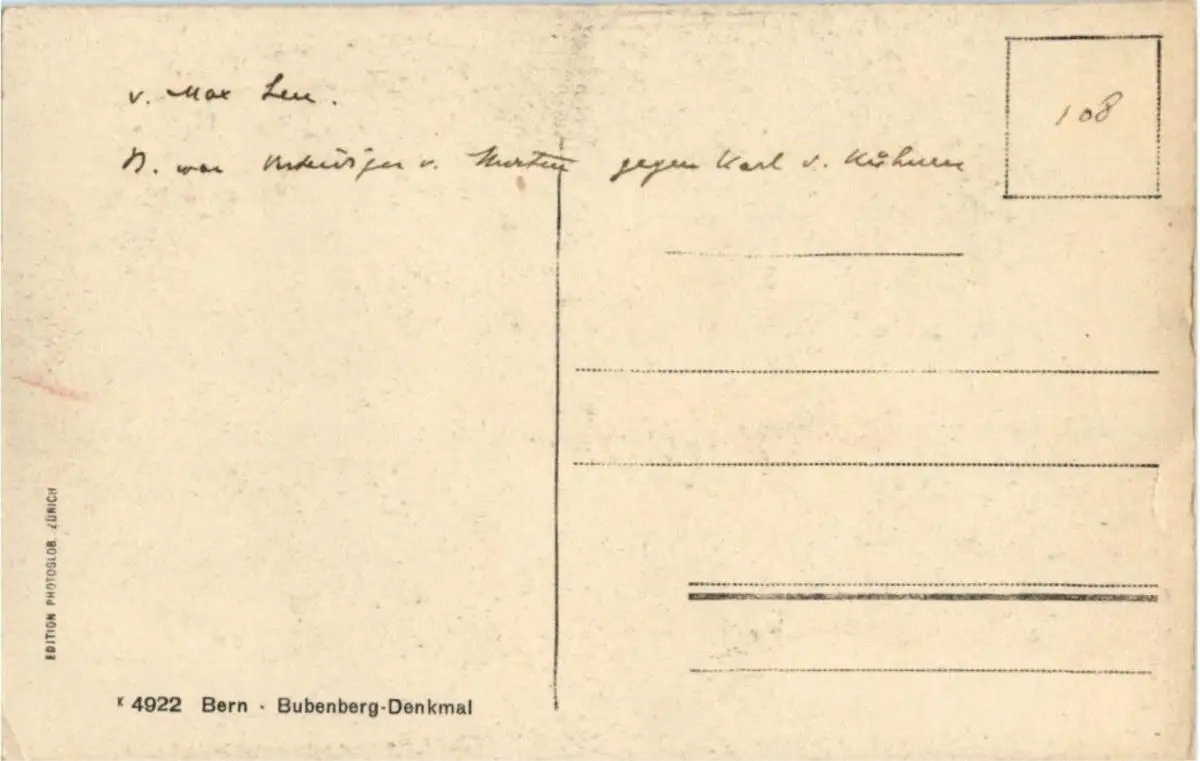 v. Max Leu.
B. war Verteidiger v. Murten gegen Karl v. Kühnen
108
EDITION PHOTOGLOB. ZÜRICH
K 4922 Bern · Bubenberg-Denkmal